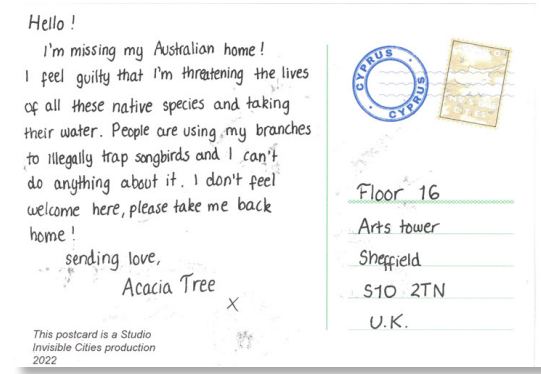 Hello !
I'm missing my Australian home !
I feel guilty that I'm threatening the lives
of all these native species and taking
their water. People are using my branches
to illegally trap songbirds and I can't
do anything about it. I don't feel
welcome here, please take me back
home !
sending love,
Acacia Tree
x
This postcard is a Studio
Invisible Cities production
2022
CYPRUS
CYPRUS
Floor 16
Arts tower
Sheffield
S10 2TN
U.K.